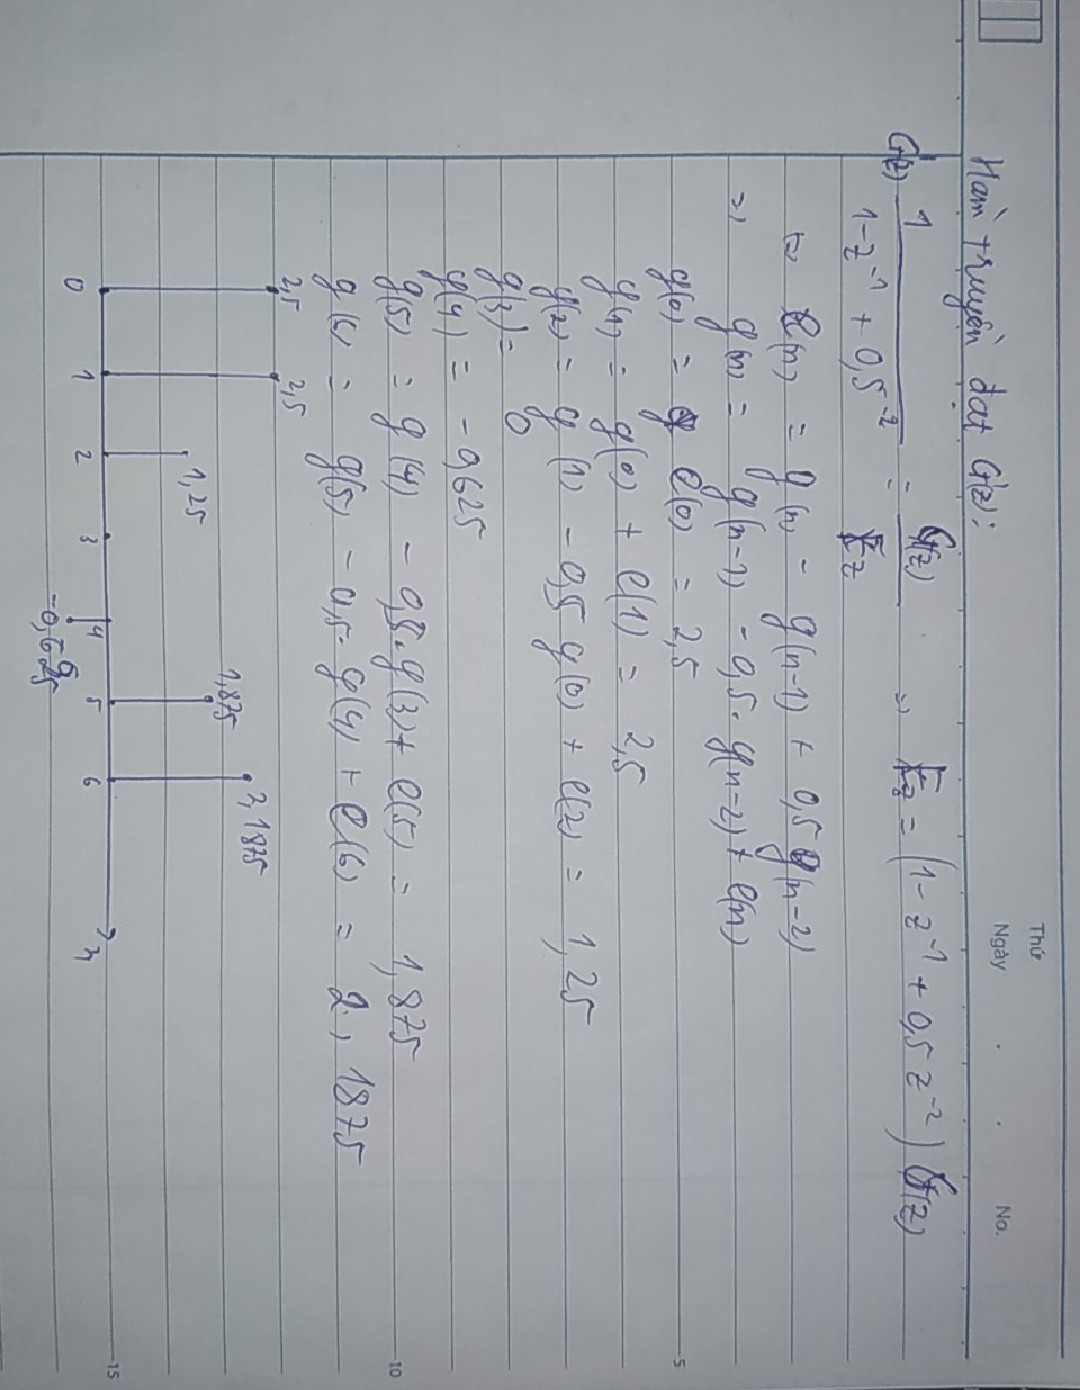 Thứ
Ngày . . No.
Hàm truyền đạt G(z):
G(z) 1 / 1-z⁻¹ + 0,5⁻² = G(z) / Ez => Ez = (1 - z⁻¹ + 0,5 z⁻²) G(z)
e(n) = g(n) - g(n-1) + 0,5 g(n-2)
=> g(n) = g(n-1) - 0,5. g(n-2) + e(n)
g(0) = e(0) = 2,5
g(1) = g(0) + e(1) = 2,5
g(2) = g(1) - 0,5 g(0) + e(2) = 1,25
g(3) = 0
g(4) = - 0,625
g(5) = g(4) - 0,5. g(3) + e(5) = 1,875
g(6) = g(5) - 0,5. g(4) + e(6) = 2,1875
2,5 2,5 1,25 1,875 2,1875
0 1 2 3 4 5 6 n
-0,625
5
10
15